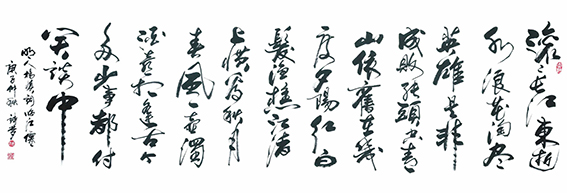 滚滚长江東逝
水浪花淘尽
英雄是非
成败转头空青
山依旧在几
度夕阳红白
髮渔樵江渚
上惯看秋月
春风一壶濁
酒喜相逢古今
多少事都付
笑谈中
明人杨慎词临江仙
庚子仲秋